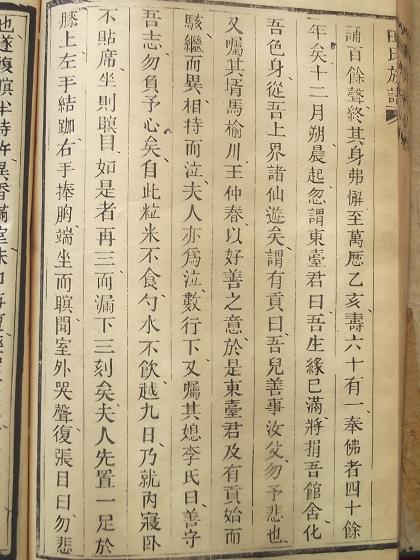 田氏族譜
誦百餘聲終其身弗懈至萬曆乙亥壽六十有一奉佛者四十餘
年矣十二月朔晨起忽謂東臺君曰吾生緣已滿將捐吾館舍化
吾色身從吾上界諸仙遊矣謂有貢曰吾兒善事汝父勿予悲也
又囑其壻馬榆川王仲春以好善之意於是東臺君及有貢始而
駭繼而異相持而泣夫人亦為泣數行下又囑其媳李氏曰善守
吾志勿負予心矣自此粒米不食勺水不飲越九日乃就內寢臥
不貼席坐則瞑目如是者再三而漏下三刻矣夫人先置一足於
膝上左手結跏右手捧胸端坐而瞑聞室外哭聲復張目曰勿悲
也遂復瞑半時許異香滿室